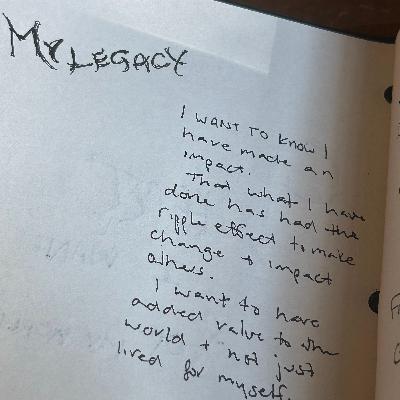 My LEGACY
I WANT TO KNOW I
have made an
impact.
That what I have
done has had the
ripple effect to make
change + impact
others.
I want to have
added value to the
world + not just
lived for myself.